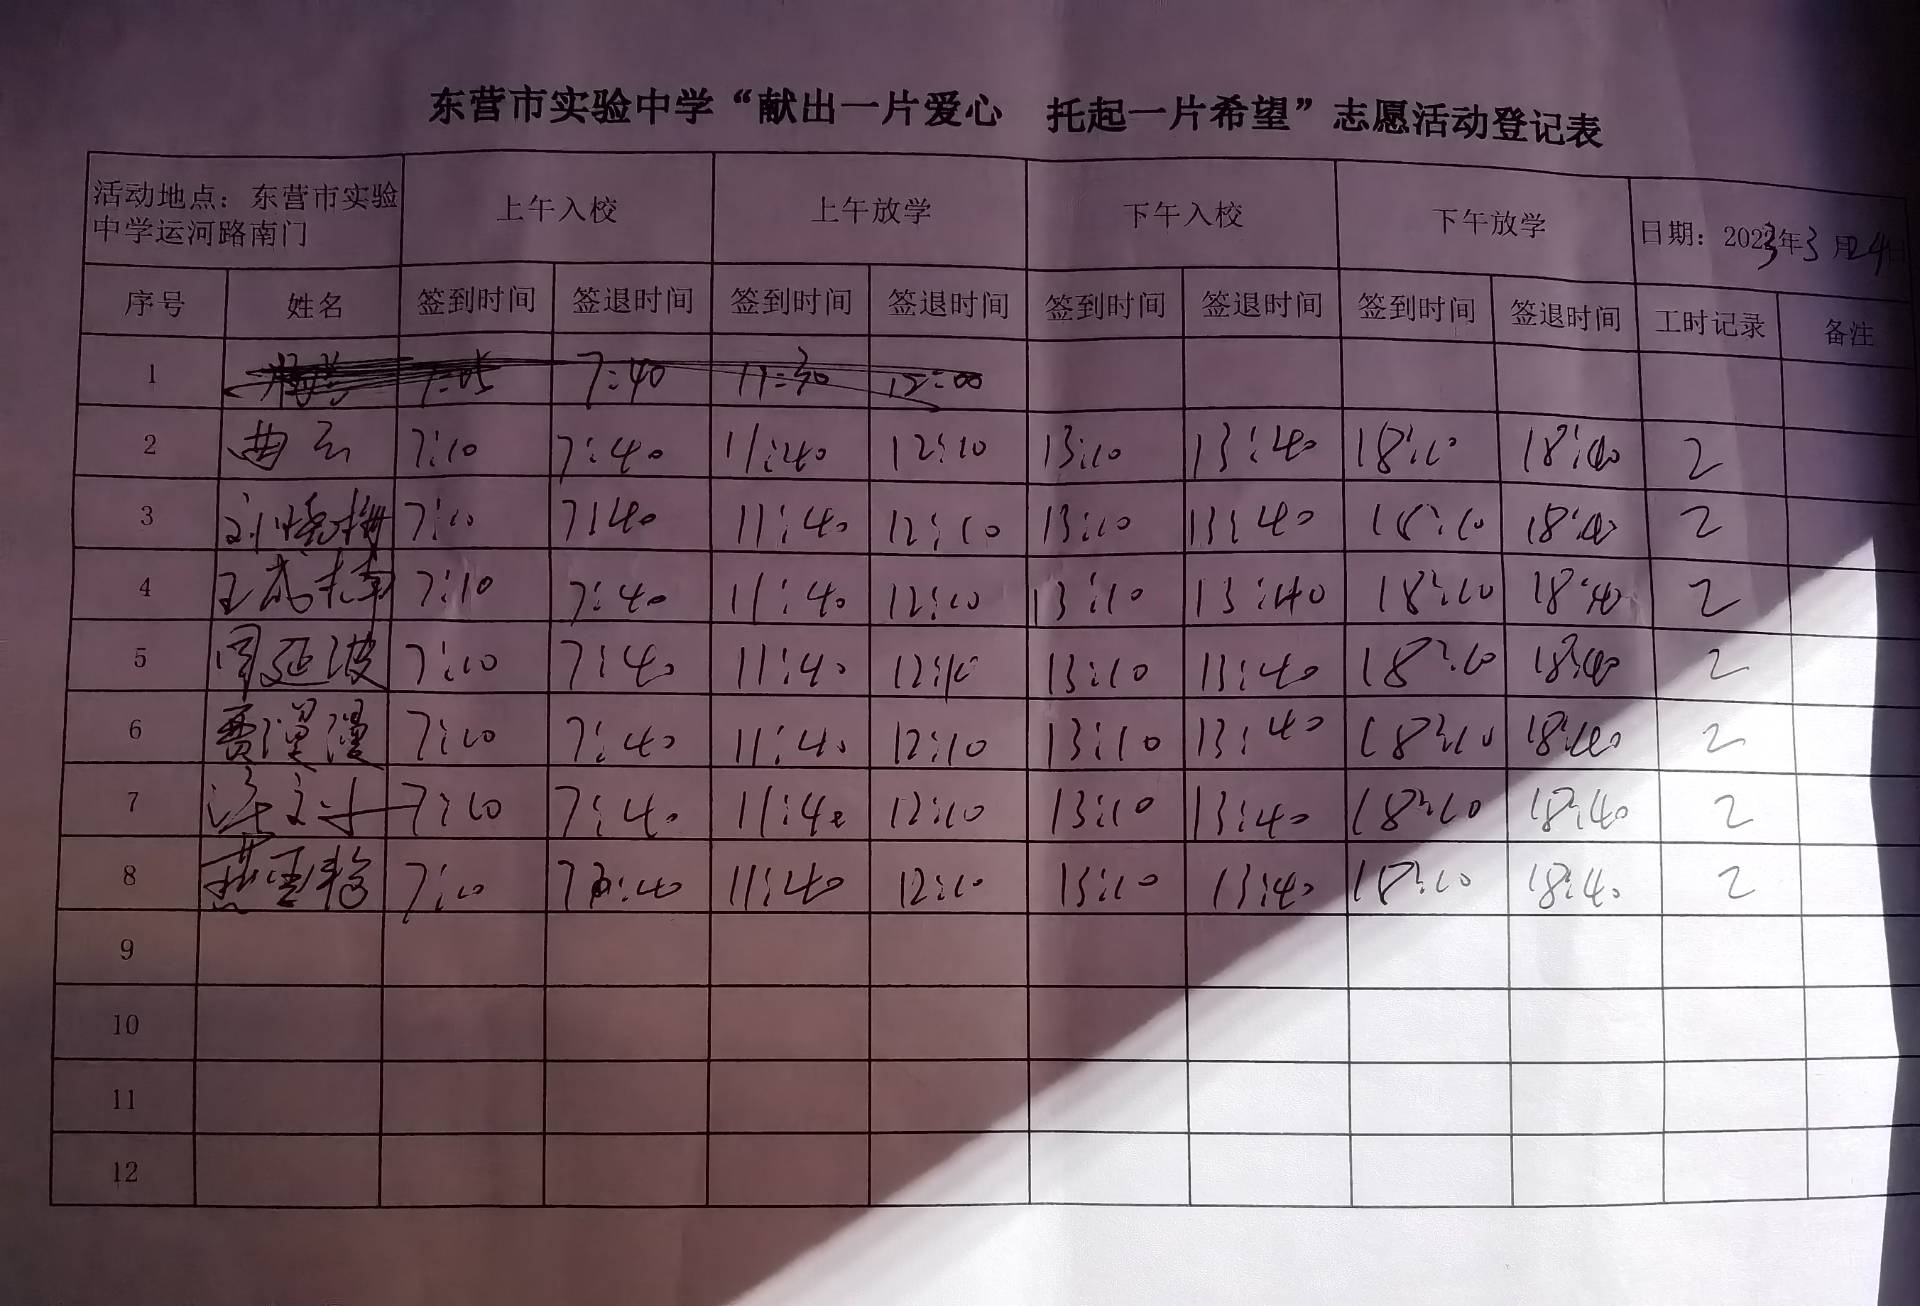 东营市实验中学“献出一片爱心 托起一片希望”志愿活动登记表
活动地点：东营市实验中学运河路南门 上午入校 上午放学 下午入校 下午放学 日期：2023年3月24日
序号 姓名 签到时间 签退时间 签到时间 签退时间 签到时间 签退时间 签到时间 签退时间 工时记录 备注
1 7:05 7:40 11:30 12:00
2 曲云 7:10 7:40 11:40 12:10 13:10 13:40 18:10 18:40 2
3 刘晓梅 7:10 7:40 11:40 12:10 13:10 13:40 18:10 18:40 2
4 7:10 7:40 11:40 12:10 13:10 13:40 18:10 18:40 2
5 周延波 7:10 7:40 11:40 12:10 13:10 13:40 18:10 18:40 2
6 贾漫漫 7:10 7:40 11:40 12:10 13:10 13:40 18:10 18:40 2
7 7:10 7:40 11:40 12:10 13:10 13:40 18:10 18:40 2
8 7:10 7:40 11:40 12:10 13:10 13:40 18:10 18:40 2
9
10
11
12